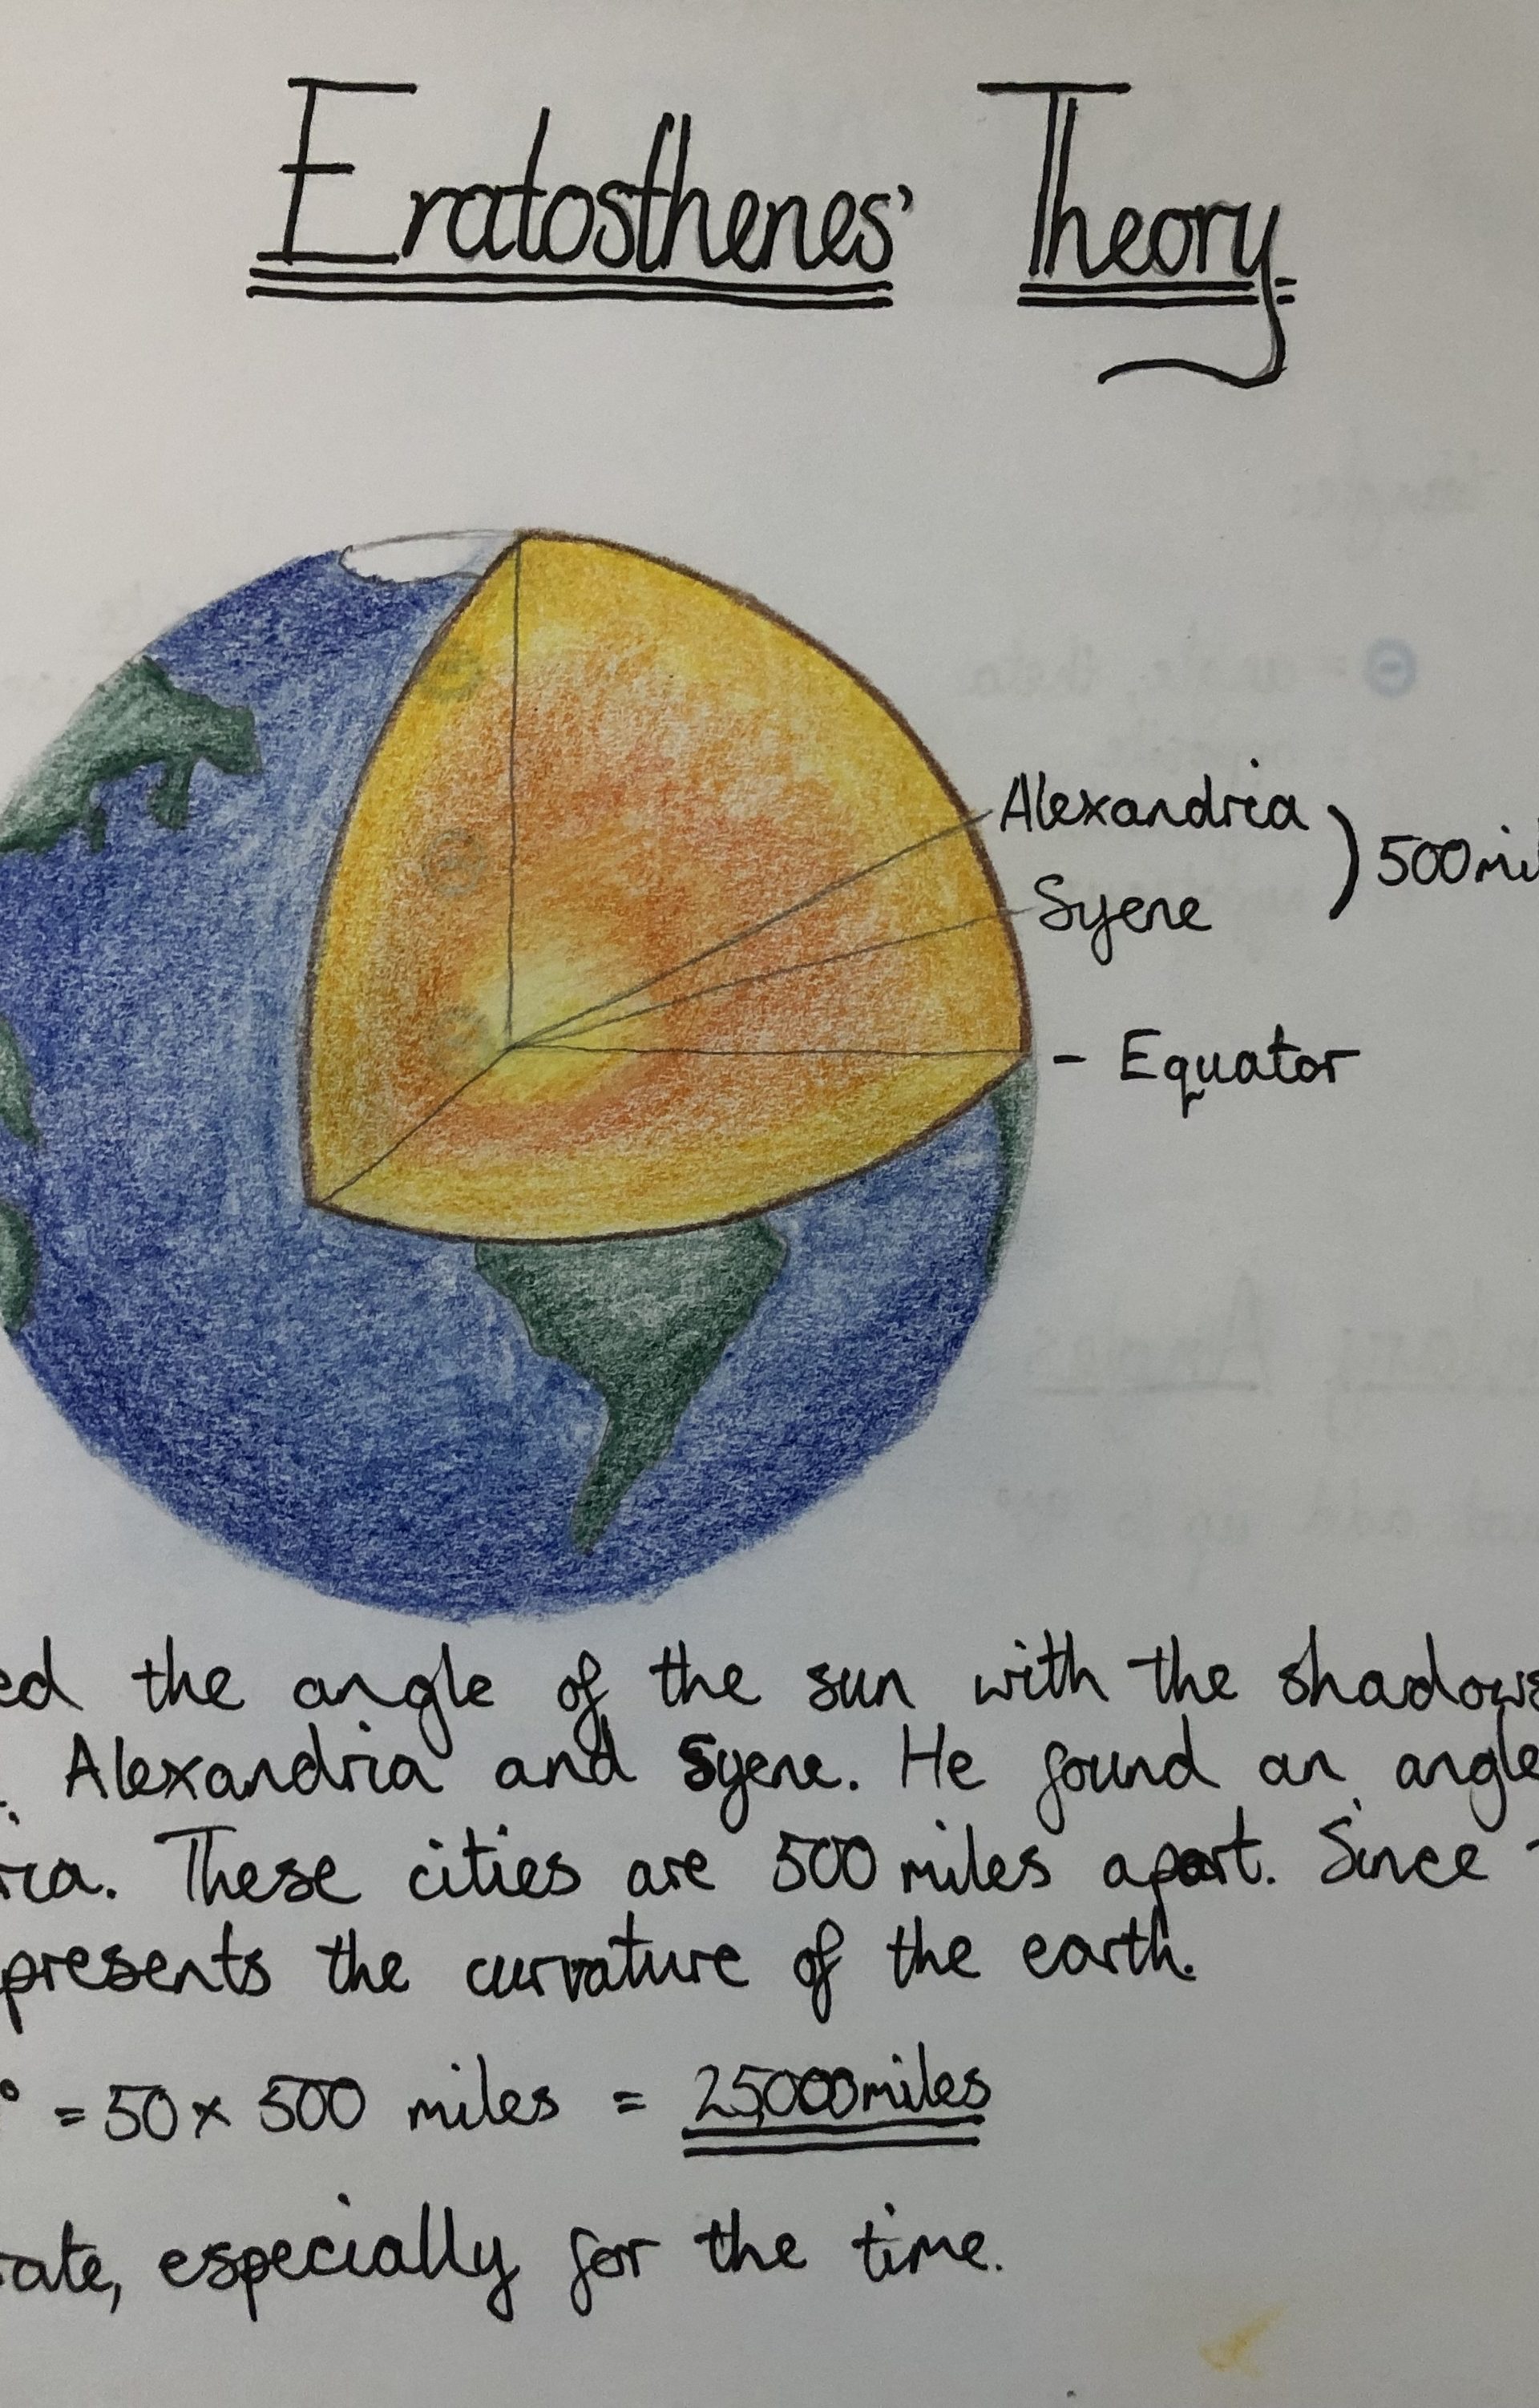 Eratosthenes' Theory
Alexandria
Syene
500mi
- Equator
ed the angle of the sun with the shadows
Alexandria and Syene. He found an angle
ria. These cities are 500 miles apart. Since
presents the curvature of the earth.
° = 50 x 500 miles = 25000miles
rate, especially for the time.